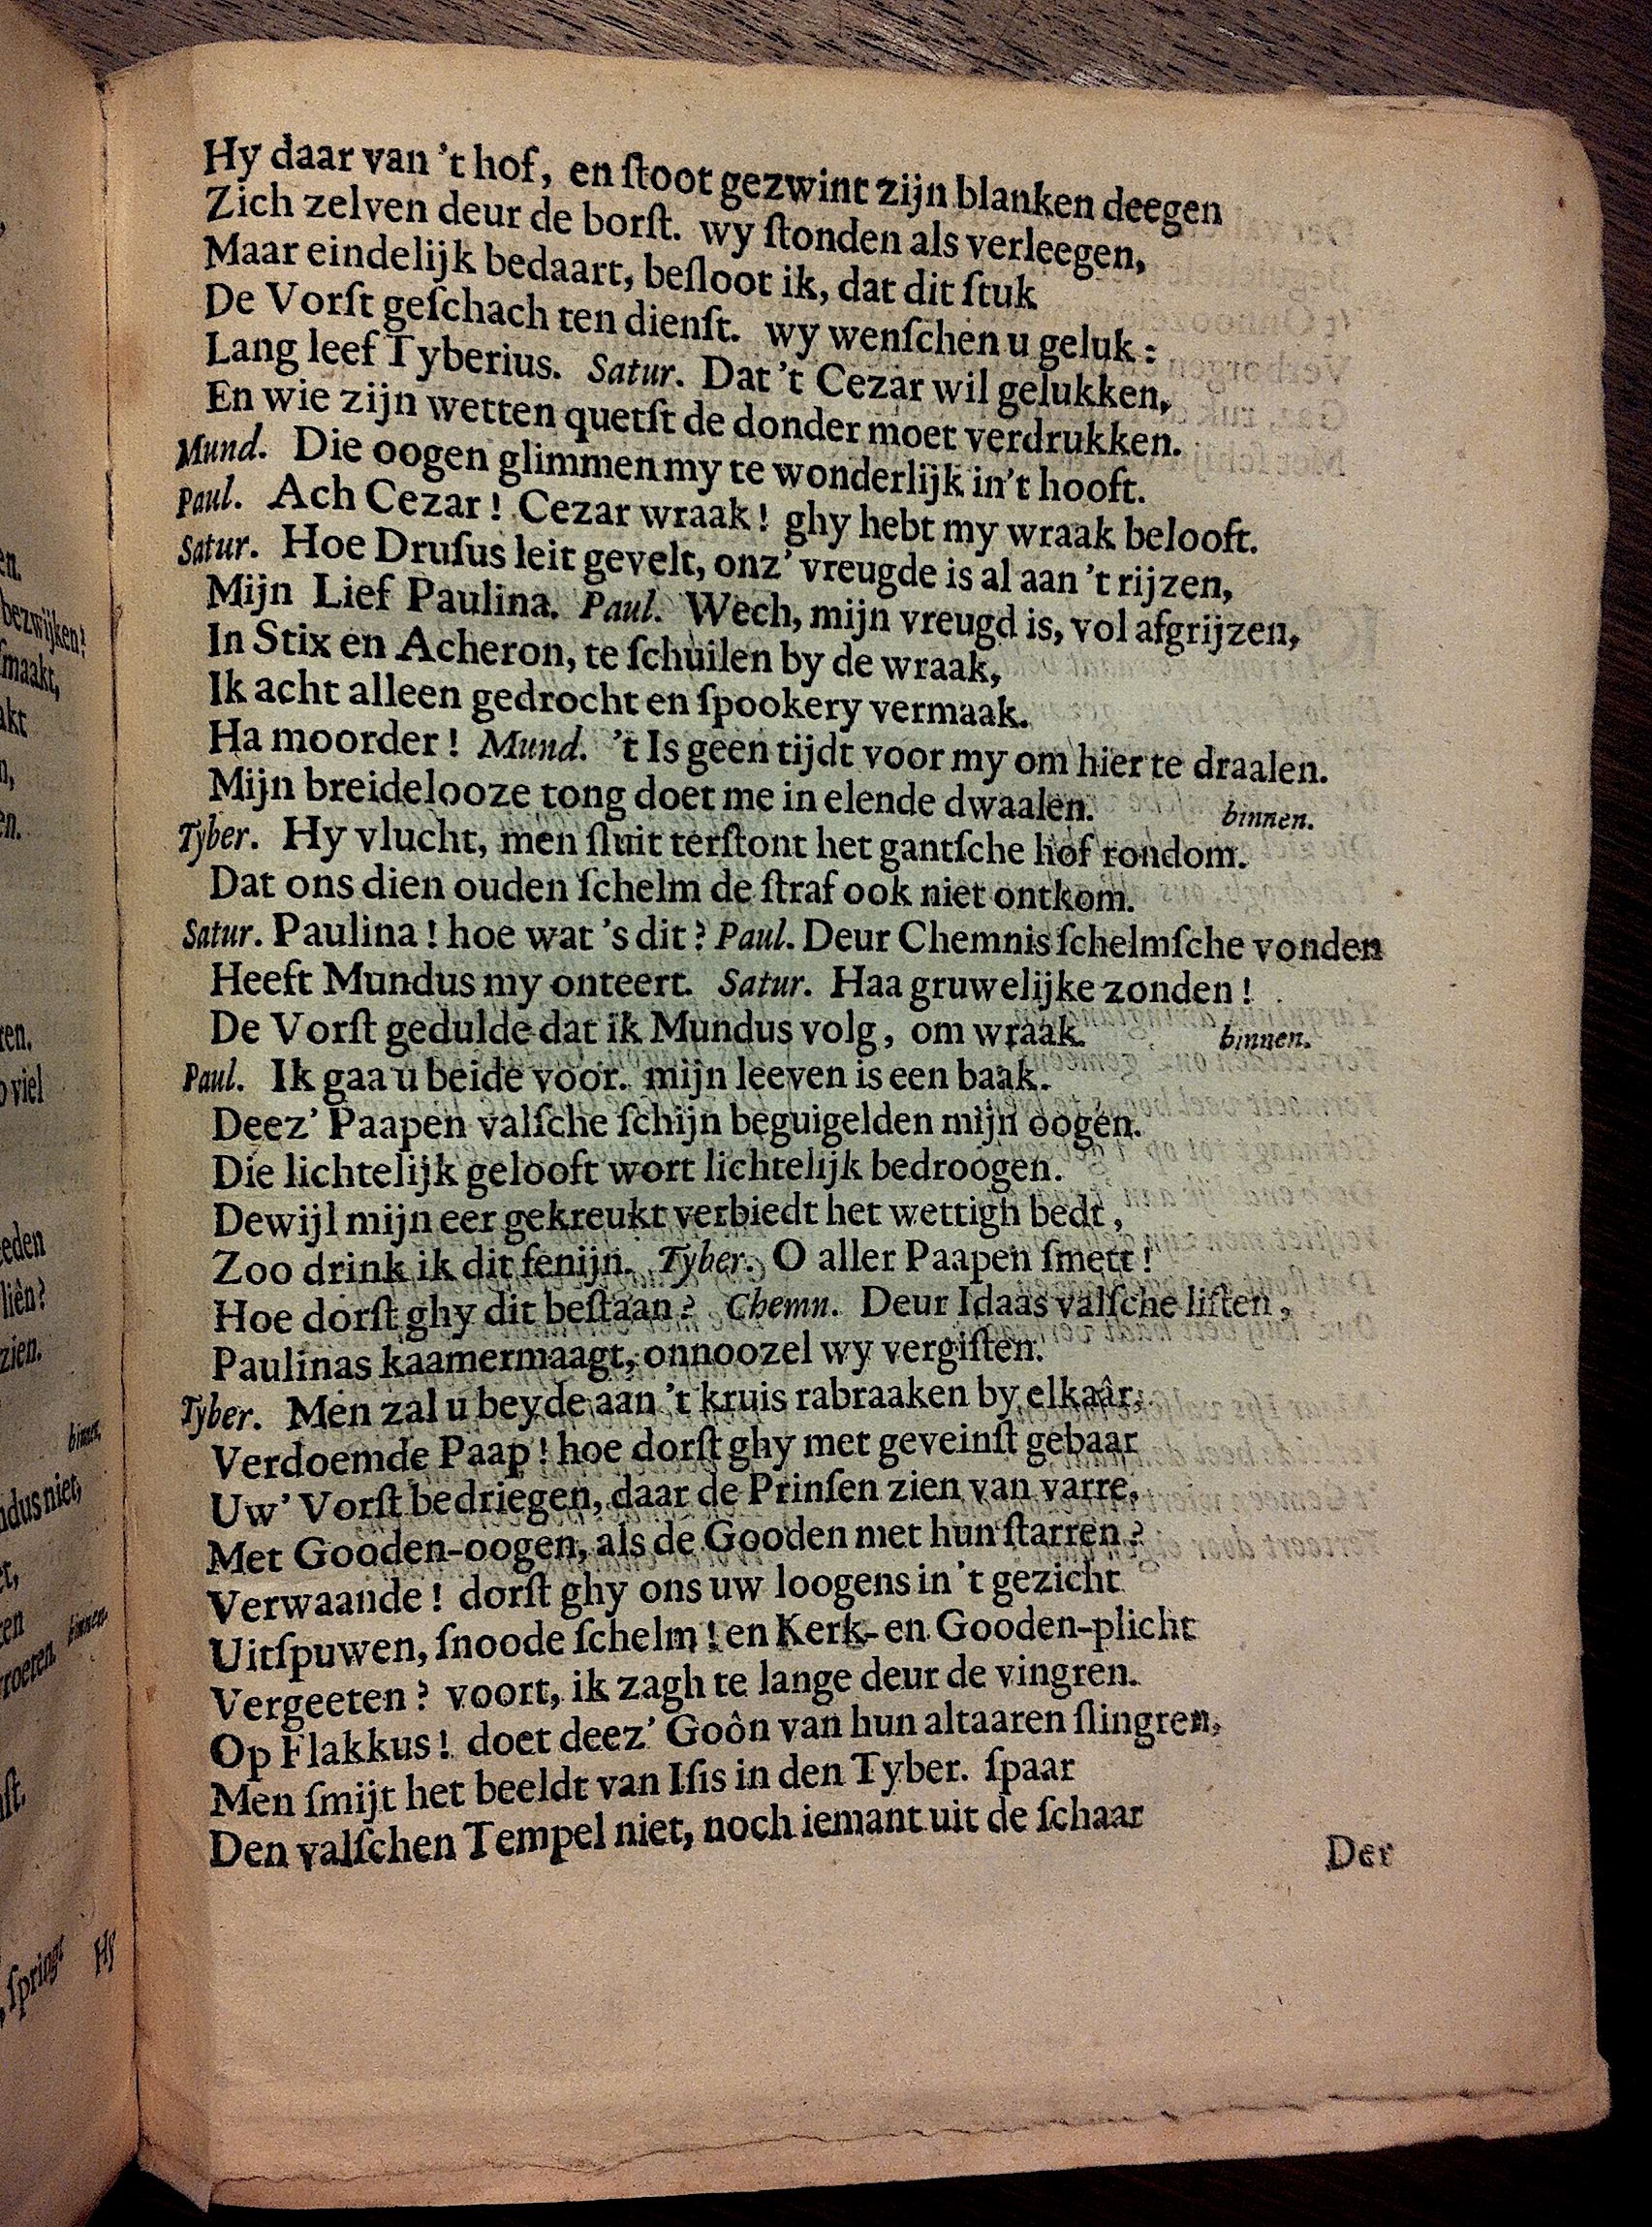 Hy daar van 't hof, en ſtoot gezwint zijn blanken deegen
Zich zelven deur de borſt. wy ſtonden als verleegen,
Maar eindelijk bedaart, beſloot ik, dat dit ſtuk
De Vorſt geſchach ten dienſt. wy wenſchen u geluk:
Lang leef Tyberius. Satur. Dat 't Cezar wil gelukken,
En wie zijn wetten quetſt de donder moet verdrukken.
Mund. Die oogen glimmen my te wonderlijk in 't hooft.
Paul. Ach Cezar! Cezar wraak! ghy hebt my wraak belooft.
Satur. Hoe Druſus leit gevelt, onz' vreugde is al aan 't rijzen,
Mijn Lief Paulina. Paul. Wech, mijn vreugd is, vol afgrijzen,
In Stix en Acheron, te ſchuilen by de wraak,
Ik acht alleen gedrocht en ſpookery vermaak.
Ha moorder! Mund. 't Is geen tijdt voor my om hier te draalen.
Mijn breidelooze tong doet me in elende dwaalen. binnen.
Tyber. Hy vlucht, men ſluit terſtont het gantſche hof rondom.
Dat ons dien ouden ſchelm de ſtraf ook niet ontkom.
Satur. Paulina! hoe wat 's dit? Paul. Deur Chemnis ſchelmſche vonden
Heeft Mundus my onteert. Satur. Haa gruwelijke zonden!
De Vorſt gedulde dat ik Mundus volg, om wraak. binnen.
Paul. Ik gaa u beide voor. mijn leeven is een baak.
Deez' Paapen valſche ſchijn beguigelden mijn oogen.
Die lichtelijk gelooft wort lichtelijk bedroogen.
Dewijl mijn eer gekreukt verbiedt het wettigh bedt,
Zoo drink ik dit fenijn. Tyber. O aller Paapen ſmett!
Hoe dorſt ghy dit beſtaan? Chemn. Deur Idaas valſche liſten,
Paulinas kaamermaagt, onnoozel wy vergiſten.
Tyber. Men zal u beyde aan 't kruis rabraaken by elkaâr,
Verdoemde Paap! hoe dorſt ghy met geveinſt gebaar
Uw' Vorſt bedriegen, daar de Prinſen zien van varre,
Met Gooden-oogen, als de Gooden met hun ſtarren?
Verwaande! dorſt ghy ons uw loogens in 't gezicht
Uitſpuwen, ſnoode ſchelm! en Kerk- en Gooden-plicht
Vergeeten? voort, ik zagh te lange deur de vingren.
Op Flakkus! doet deez' Goôn van hun altaaren ſlingren,
Men ſmijt het beeldt van Iſis in den Tyber. ſpaar
Den valſchen Tempel niet, noch iemant uit de ſchaar
Der